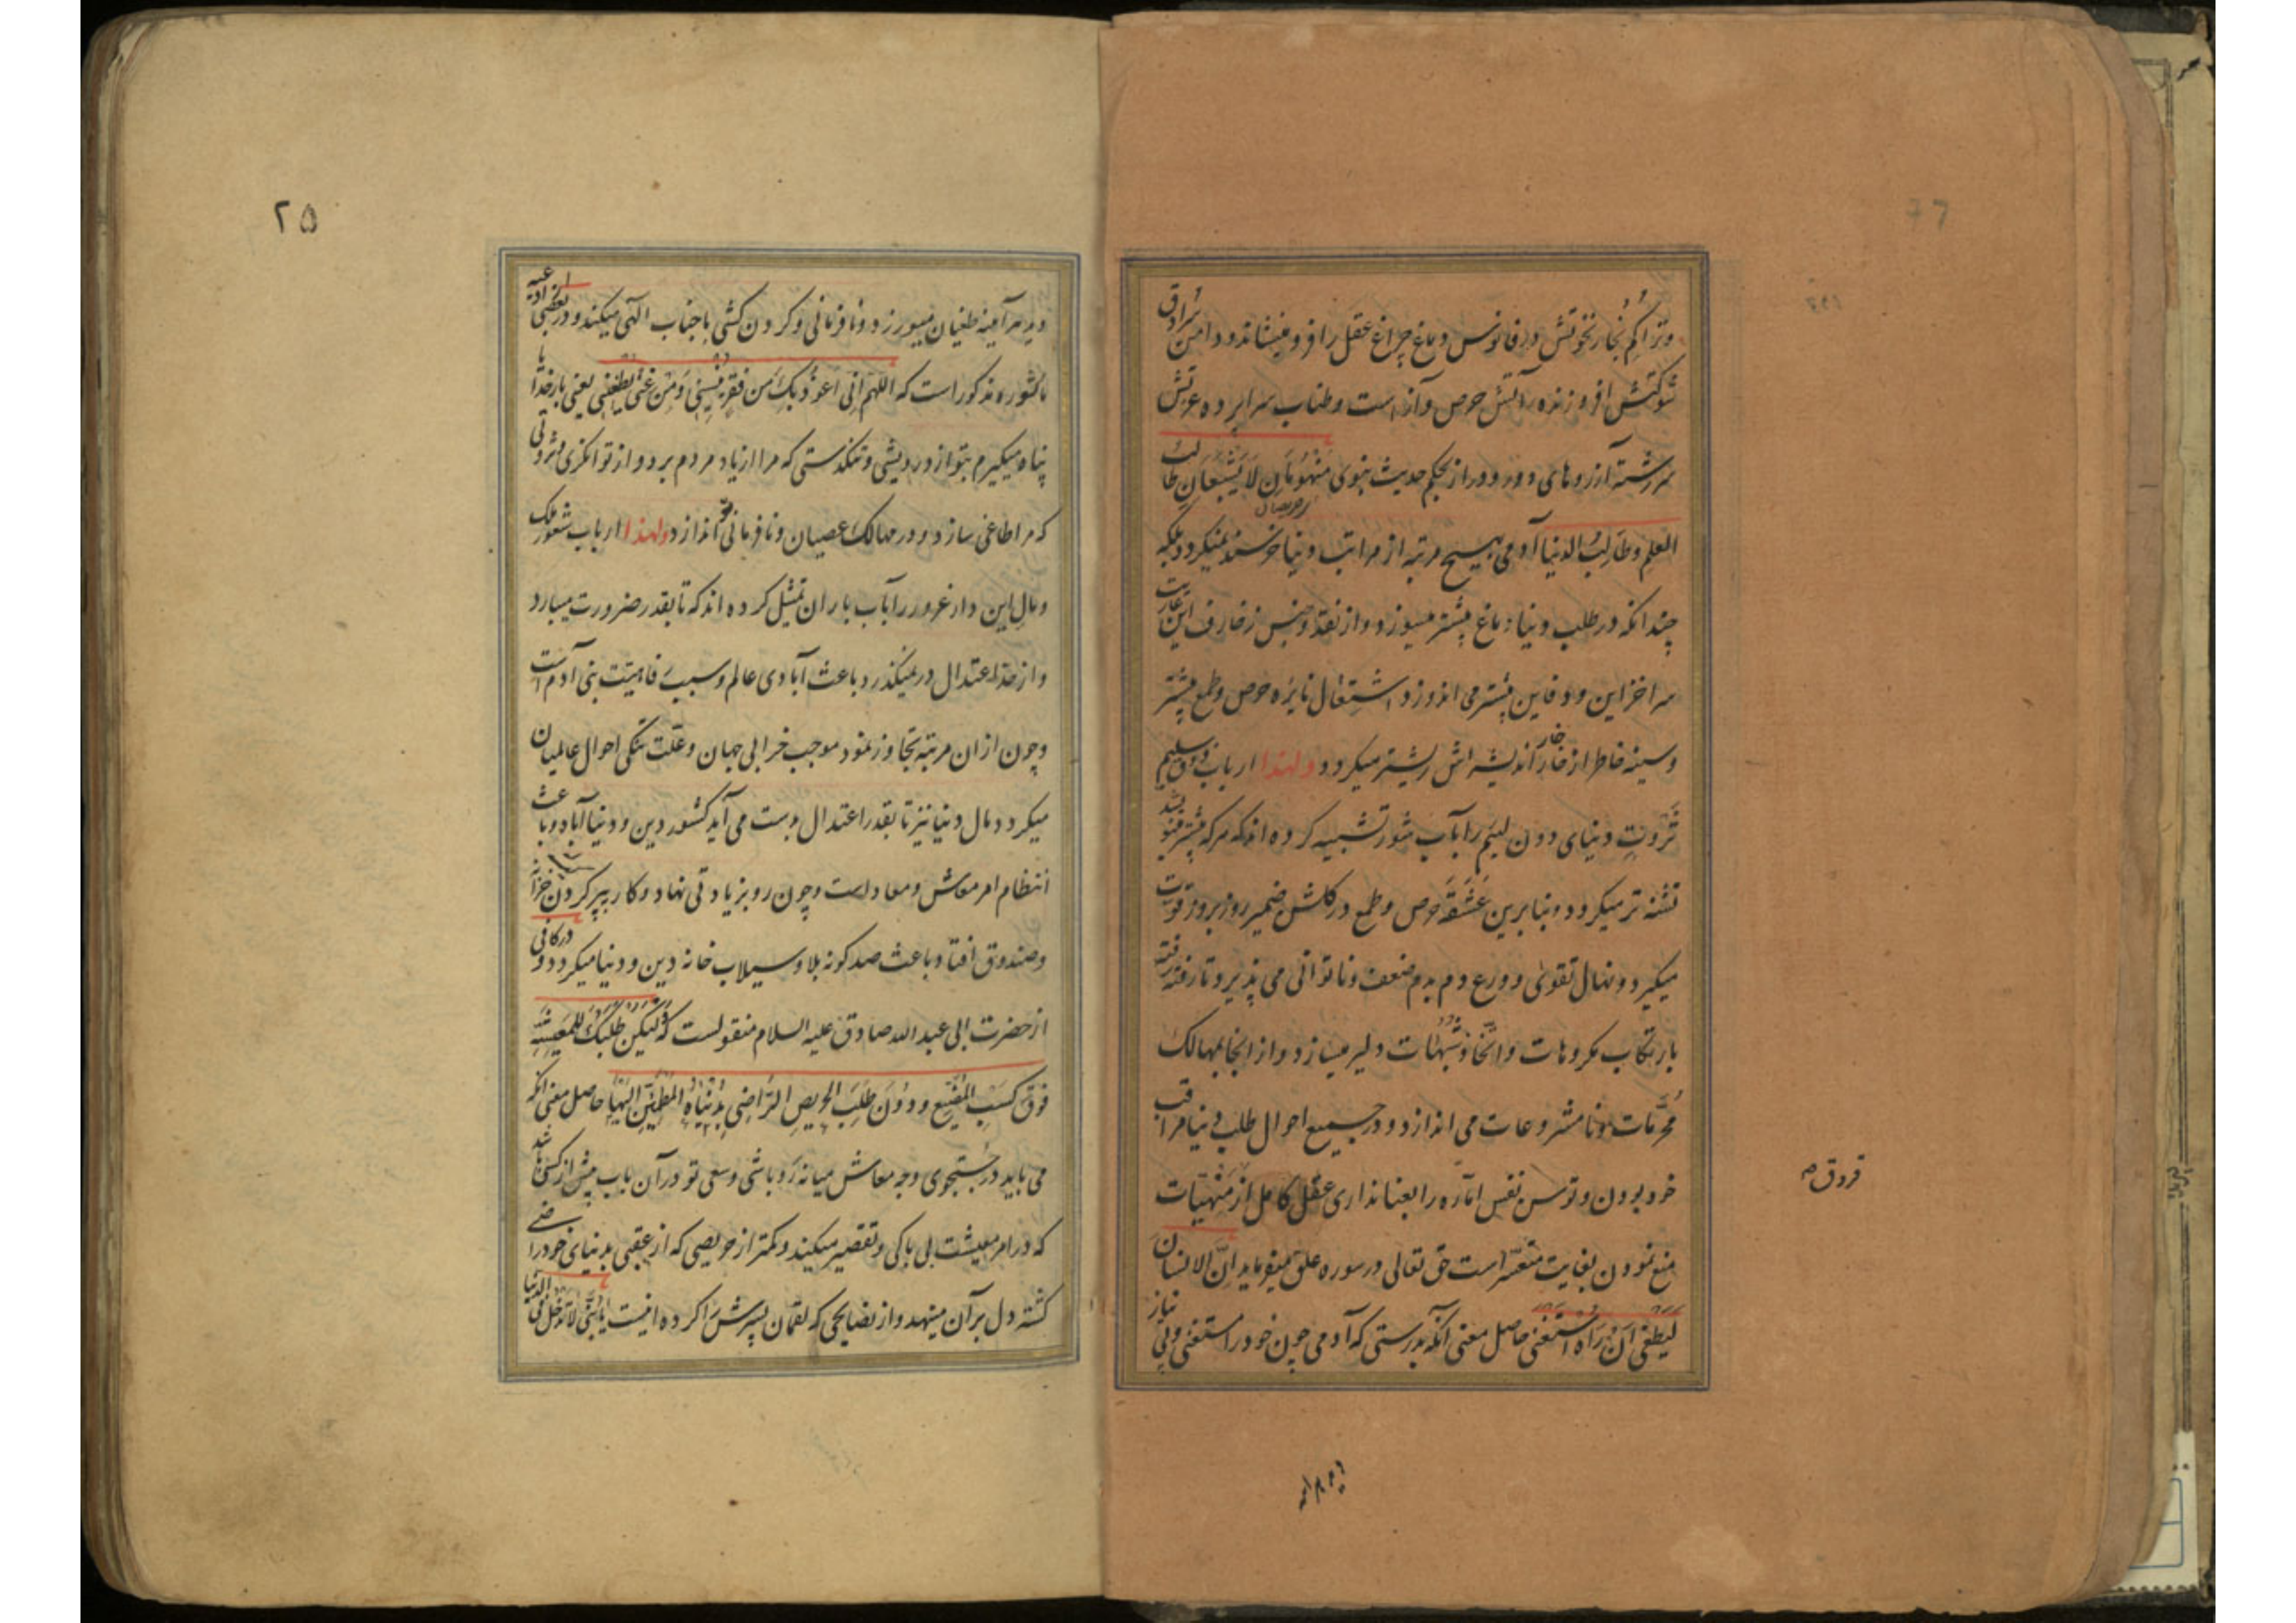 وتراکم بخار نخوتش در فانوس دماغ چراغ عقل را فرو مینشاند و دامن سرادق
شوکتش افروزنده آتش حرص و آز است و طناب سراپرده عزتش
سررشته آرزوهای دور و دراز بحکم حدیث نبوی مَنْهُومَانِ لَا یَشْبَعَانِ طالبُ
حریصان
العلم وطَالِبُ الدنیا آدمی بهیچ مرتبه از مراتب دنیا خرسند نمیگردد بلکه
چندانکه در طلب دنیا دماغ بیشتر میسوزد و از نقد و جنس زخارف این عاریت
سرا خزاین و دفاین بیشتر می اندوزد اشتعال نایره حرص و طمع بیشتر
وسینه خاطر از خار خار اندیشه اش ریشتر میگردد ولهذا ارباب ذوق سلیم
ثروتِ دنیای دون لئیم را بآب شور تشبیه کرده اند که هرکه بیشتر مینوشد
تشنه تر میگردد وبنا برین عَشَقَه حرص و طمع در گلشن ضمیر روز بروز قوت
میگیرد ونهال تقوی و ورع دم بدم ضعف و ناتوانی می پذیرد تا رفته رفته
بارتکاب مکروهات واتخاذ شبهات دلیر میسازد و از آنجا بمهالک
محرّمات ونامشروعات می اندازد و در جمیع احوال طلب دنیا مراقب
خود بودن و توسن نفس امّاره را بعنانداری عقل کامل از منهیّات
منع نمودن بغایت متعسّر است حق تعالی در سوره علق میفرماید انّ الانسان
لَیَطْغی اَنْ رَاهُ اسْتَغنی حاصل معنی آنکه بدرستی که آدمی چون خود را مستغنی و بی نیاز
فروق
۲۵
دید هر آینه طغیان میورزد و نافرمانی و گردن کشی با جناب الهی میکند و در بعضی از ادعیه
ماثوره مذکور است که اللهم انی اعوذ بِکَ مِن فقرٍ یُنسِینی وَمِن غنیً یُطغِنی یعنی بار خدایا
پناه میگیرم بتو از درویشی و تنگدستی که مرا از یاد مردم برد و از توانگری و ثروتی
که مرا طاغی سازد و در مهالک عصیان و نافرمانی اندازد ولهذا ارباب شعور ملک
ومال این دار غرور را بآب باران تمثیل کرده اند که تا بقدر ضرورت میبارد
و از حدّ اعتدال در نمیگذرد باعث آبادی عالم و سبب رفاهیت بنی آدم است
وچون ازان مرتبه تجاوز نمود موجب خرابی جهان و علّت تنگی احوال عالمیان
میگردد مال دنیا نیز تا بقدر اعتدال بدست می آید کشور دین و دنیا آباد و باعث
انتظام امر معاش و معاد است وچون رو بزیادتی نهاد و کار بپر کردن خزانه
وصندوق افتاد باعث صد گونه بلا و سیلاب خانه دین و دنیا میگردد و در کافی
از حضرت ابی عبد الله صادق علیه السلام منقولست که لیکن طلبک للمعیشه
فوق کَسبِ المُضَیِّع ودُونَ طَلَبَ الحریصِ الرّاضی بِدُنیاه المطمئِنّ الیها حاصل معنی آنکه
می باید در جستجوی وجه معاش میانه رَو باشی وسعی تو در آن باب بیش از کسی باشد
که در امر معیشت بی باکی و تقصیر میکند وکمتر از حریصی که از عقبی بدنیای خود راضی
گشته دل بر آن مینهد و از نصایحی که لقمان پسرش را کرده اینست یا بُنَیَّ لا تدخل فی الدنیا